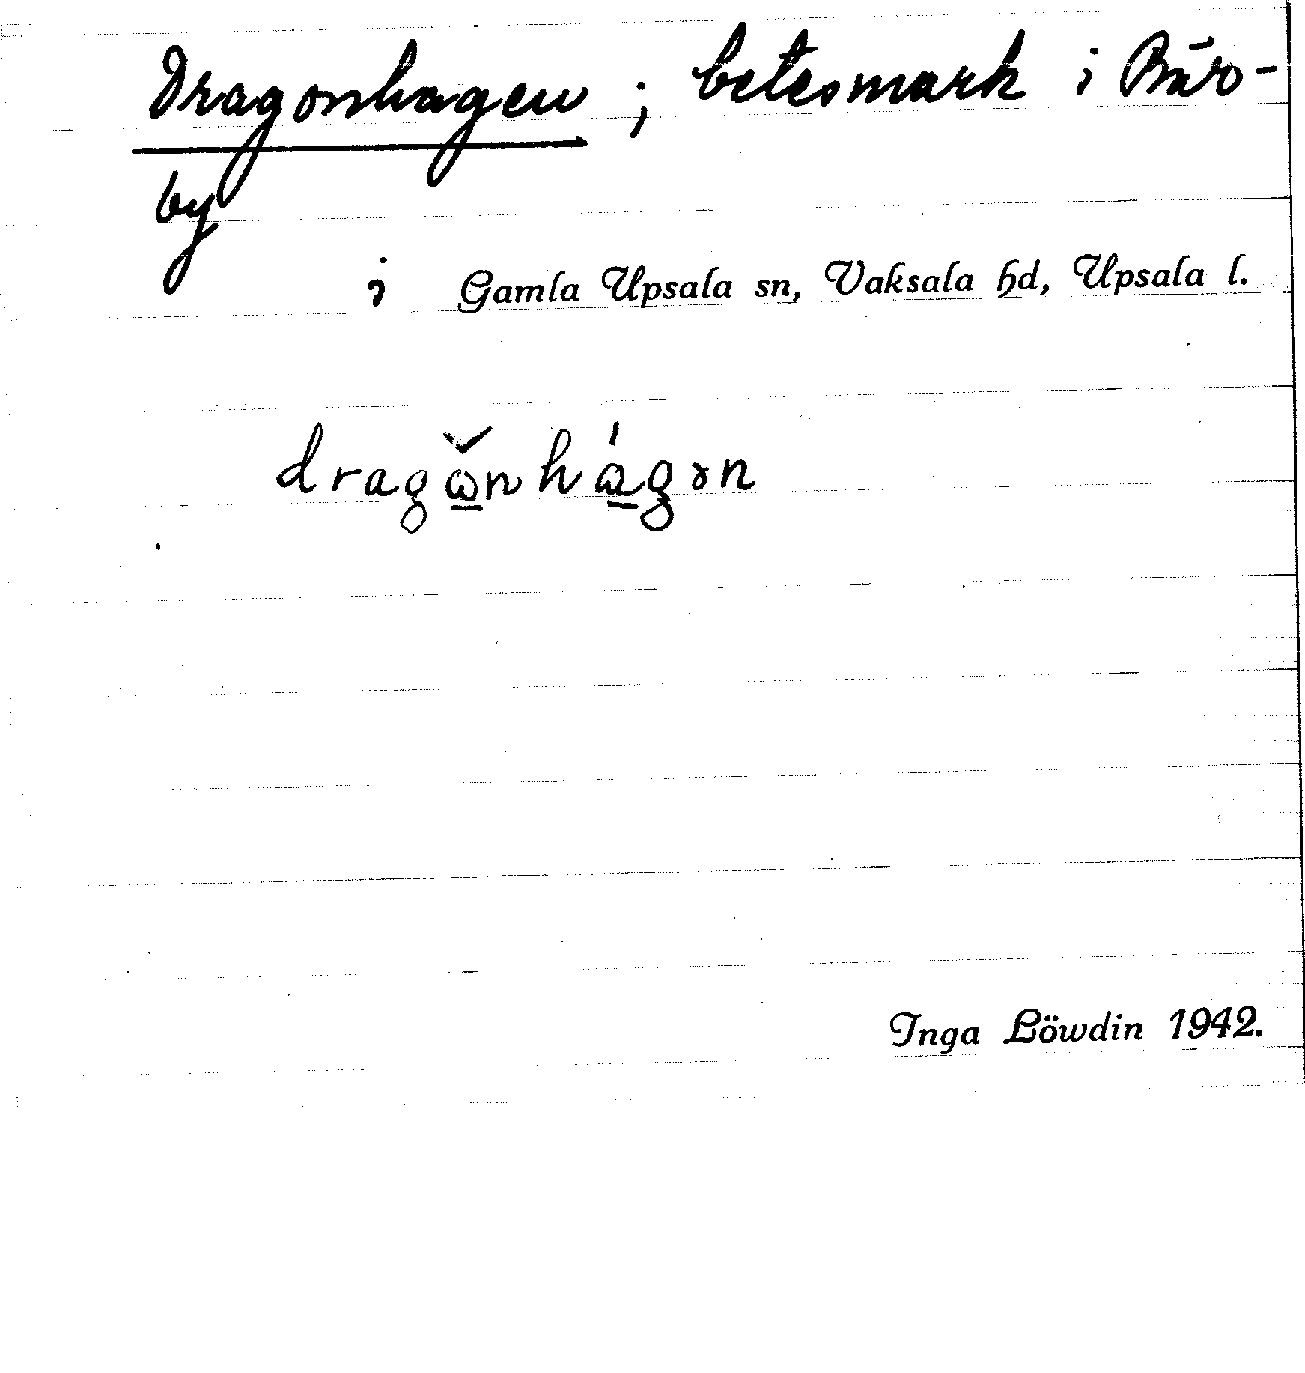 Dragonhagen; betesmark i Bär-
by
i Gamla Upsala sn, Vaksala hd, Upsala l.
Inga Löwdin 1942.